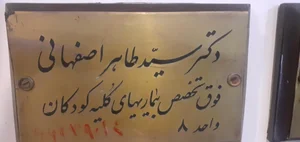 دکتر سید طاهر اصفهانی
فوق تخصص بیماریهای کلیه کودکان
واحد ۸